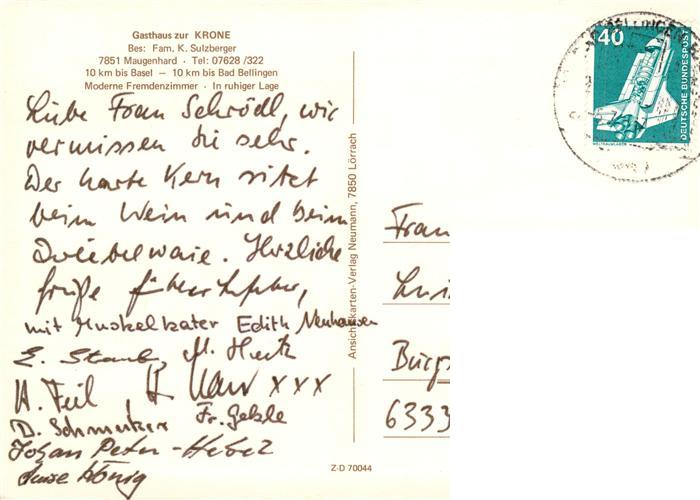 Gasthaus zur KRONE
Bes: Fam. K. Sulzberger
7851 Maugenhard · Tel: 07628 /322
10 km bis Basel — 10 km bis Bad Bellingen
Moderne Fremdenzimmer · In ruhiger Lage
Liebe Frau Schrödl, wir
vermissen Sie sehr.
Der harte Kern sitzt
beim Wein und beim
Zwiebelwaie. Herzliche
Grüße
mit Muskelkater Edith Neuhauser
E. Staub, M. Hertz
H. Feil, H. xxx
D. Schmutzer Fr. Gehle
Johan Peter-Hebel
König
Ansichtskarten-Verlag Neumann, 7850 Lörrach
Z-D 70044
40
DEUTSCHE BUNDESPOST
WELTRAUMLABOR
Frau
6333